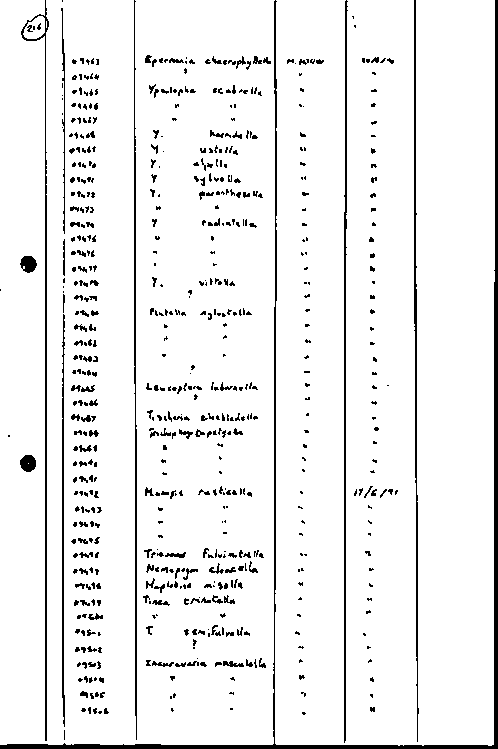 216
09463 Epermenia chaerophyllella
09464 ? "
09465 Ypsolopha scabrella " "
09466 " " " "
09467 " " " "
09468 Y. horridella " "
09469 Y. ustella " "
09470 Y. alpella " "
09471 Y sylvella " "
09472 Y. parenthesella " "
09473 " " " "
09474 Y radiatella " "
09475 " " " "
09476 " " " "
09477 " " " "
09478 Y. vittella " "
09479 ? " "
09480 Plutella xylostella " "
09481 " " " "
09482 " " " "
09483 " " " "
09484 ? " "
09485 Leucoptera laburnella " "
09486 ? " "
09487 Tischeria ekebladella " "
09488 " "
09489 " " " "
09490 " " " "
09491 " " " "
09492 Monopis rusticella " 17/6/91
09493 " " " "
09494 " " " "
09495 " " " "
09496 Triaxomera fulvimitrella " "
09497 Nemapogon cloacella " "
09498 Haplotinea " "
09499 Tinea trinotella " "
09500 " " " "
09501 T. semifulvella " "
09502 ? " "
09503 Incurvaria masculella " "
09504 " " " "
09505 " " " "
09506 " " " "